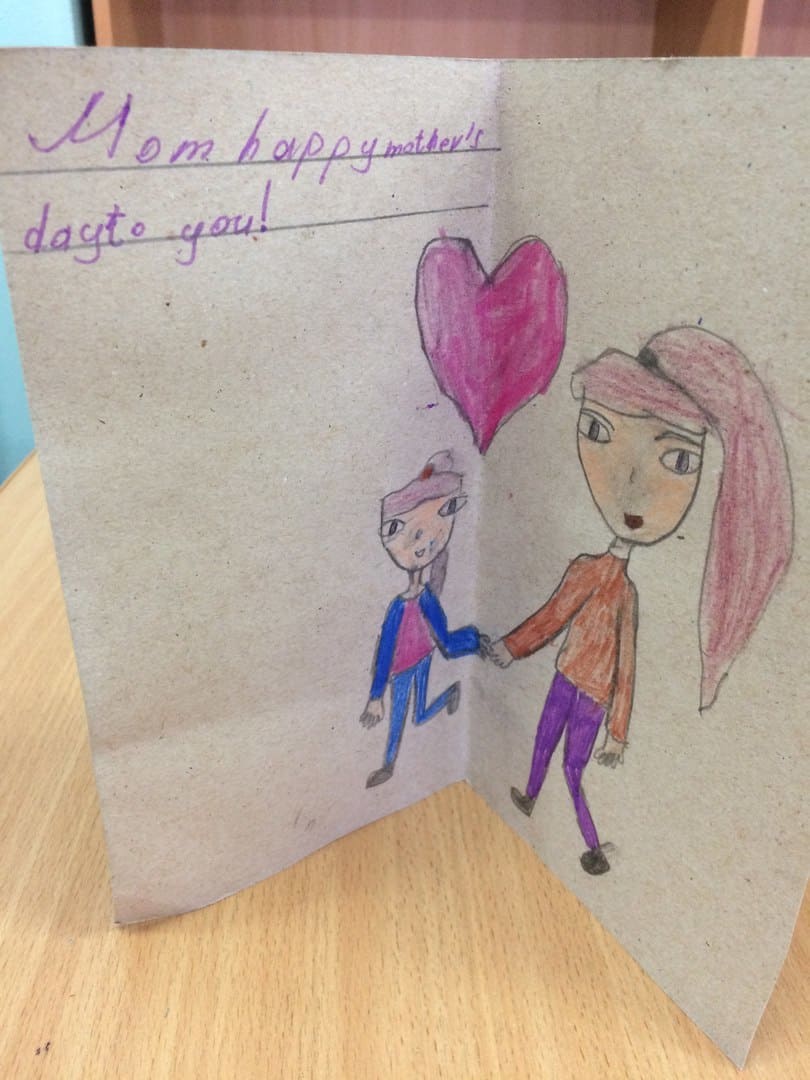 Mom happy mother's
day to you!